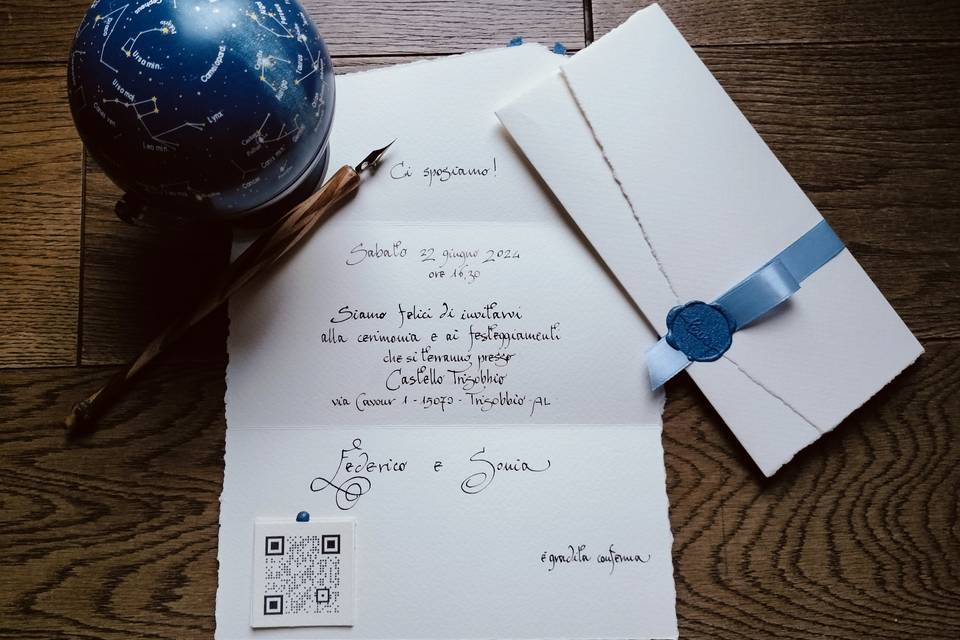 Cepheus
Ursa min.
Camelopard.
Ursa maj.
Lynx
Leo min.
Cancer
Ci sposiamo!
Sabato 22 giugno 2024
ore 16,30
Siamo felici di invitarvi
alla cerimonia e ai festeggiamenti
che si terranno presso
Castello Trisobbio
via Cavour 1 - 15070 - Trisobbio - AL
Federico e Sonia
è gradita conferma